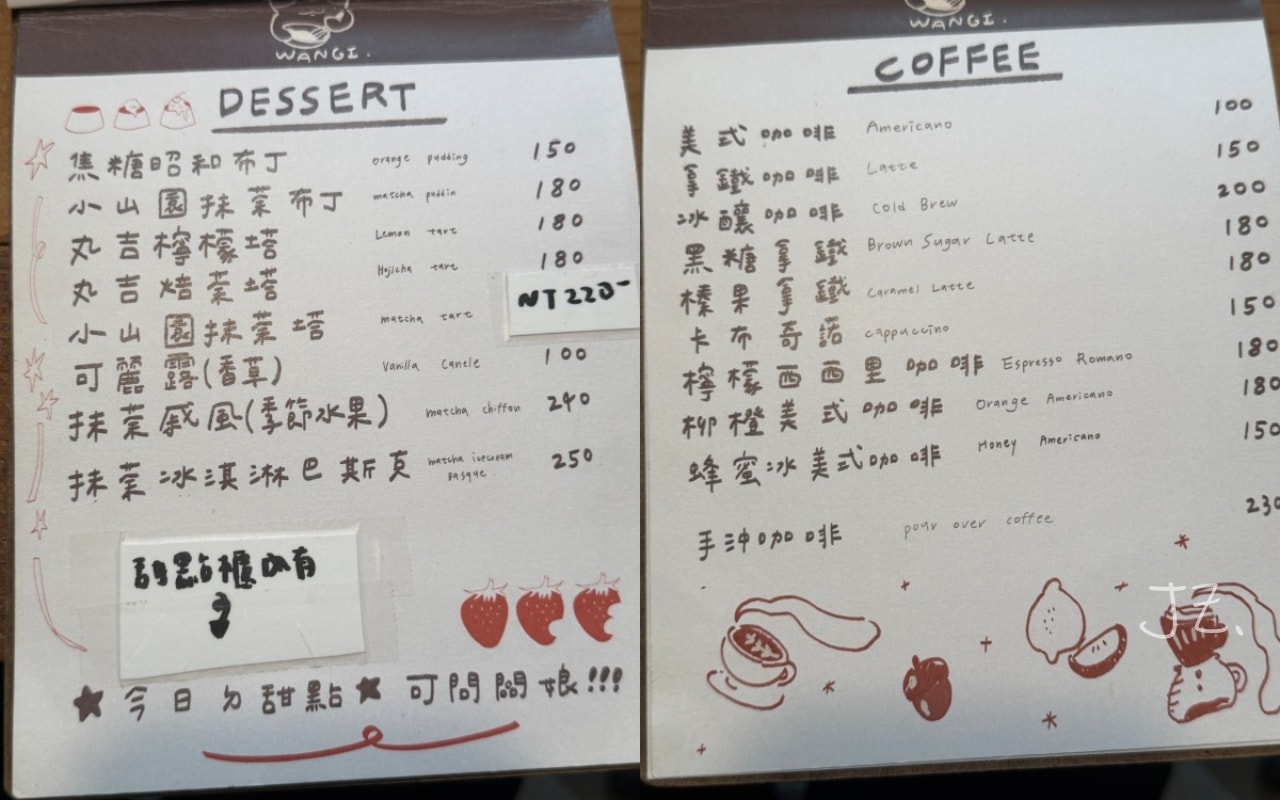 WANGI.
DESSERT
焦糖昭和布丁 orange pudding 150
小山園抹茶布丁 matcha puddin 180
丸吉檸檬塔 Lemon tart 180
丸吉焙茶塔 Hojicha tart 180
小山園抹茶塔 matcha tart NT220-
可麗露(香草) Vanilla Canele 100
抹茶戚風(季節水果) matcha chiffon 240
抹茶冰淇淋巴斯克 matcha icecream Basque. 250
甜點櫃內有
今日ㄉ甜點 可問闆娘!!!
WANGI.
COFFEE
美式咖啡 Americano 100
拿鐵咖啡 Latte 150
冰釀咖啡 Cold Brew 200
黑糖拿鐵 Brown Sugar Latte 180
榛果拿鐵 Caramel Latte 180
卡布奇諾 cappuccino 150
檸檬西西里咖啡 Espresso Romano 180
柳橙美式咖啡 Orange Americano 180
蜂蜜冰美式咖啡 Honey Americano 150
手沖咖啡 pour over coffee 230
JZ.